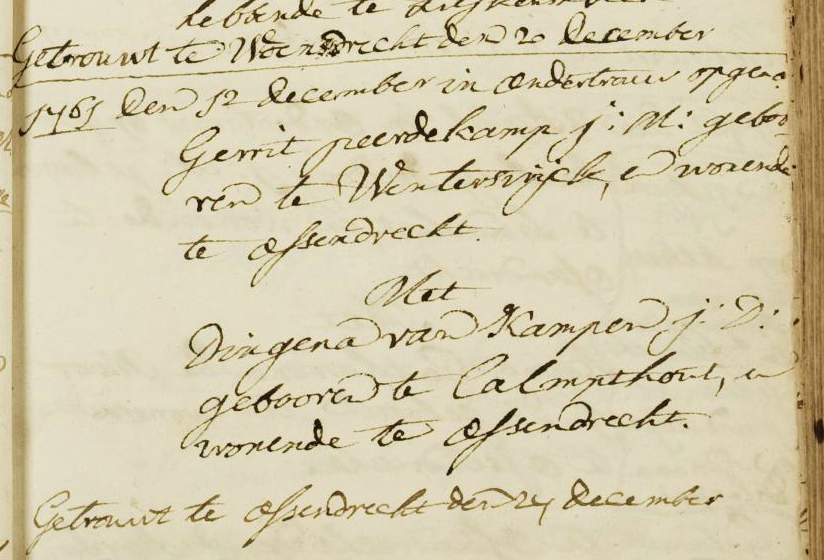 hebbende te
Getrouwt te Woensdrecht den 20 December
1761 Den 12 december in ondertrouw opgeno:
Gerrit peerdekamp j: M: geboo-
ren te Wenterswyck, en wonende
te ossendrecht.
Met
Dingena van Kampen j: D:
gebooren te Calmpthout, en
wonende te ossendrecht.
Getrouwt te ossendrecht den 27 december